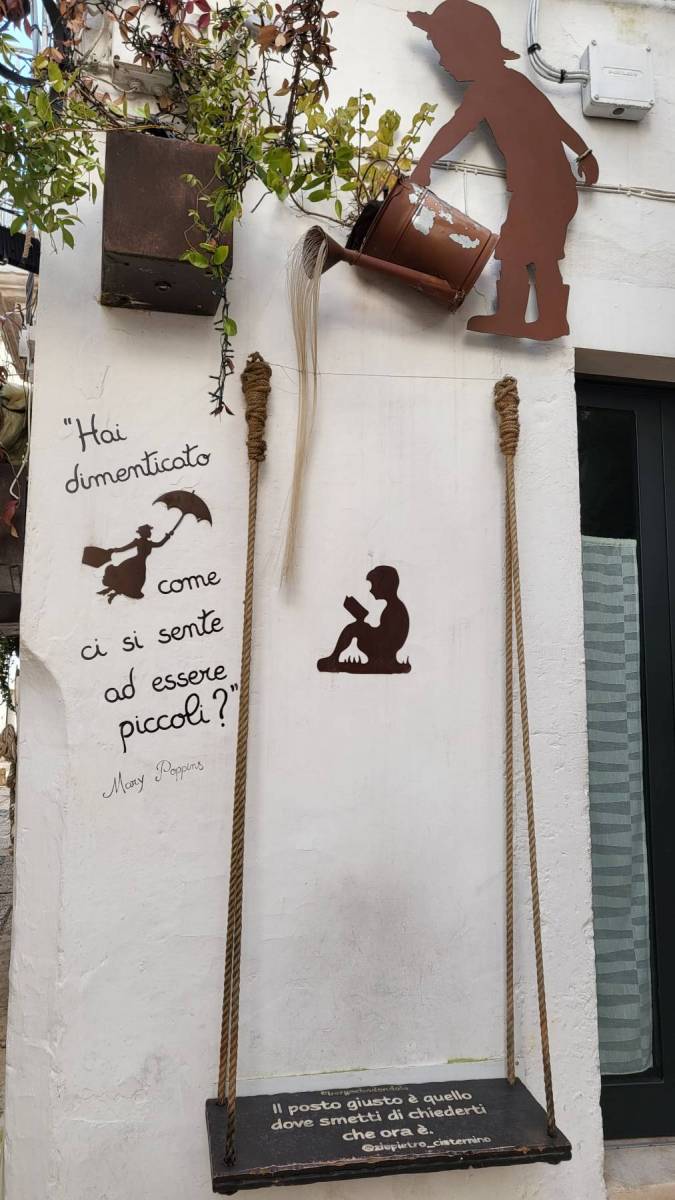 "Hai
dimenticato
come
ci si sente
ad essere
piccoli?"
Mary Poppins
Il posto giusto è quello
dove smetti di chiederti
che ora è.
@ziopietro_cisternino